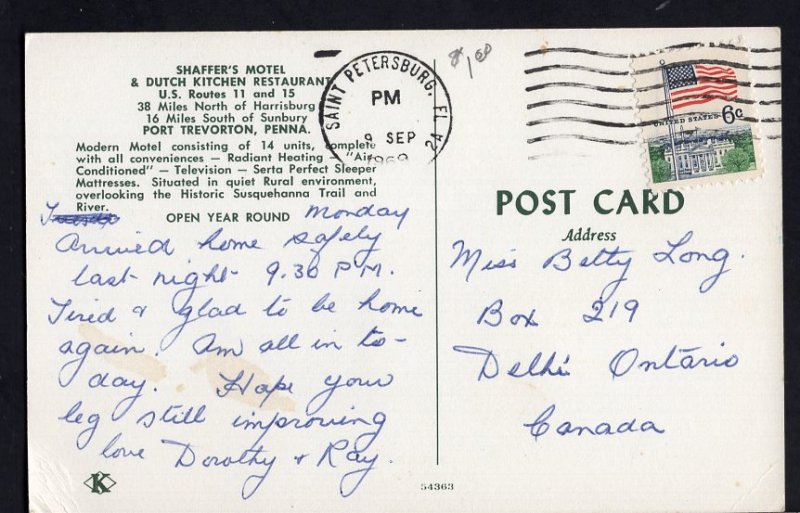 SHAFFER'S MOTEL
& DUTCH KITCHEN RESTAURANT
U.S. Routes 11 and 15
38 Miles North of Harrisburg
16 Miles South of Sunbury
PORT TREVORTON, PENNA.
Modern Motel consisting of 14 units, complete
with all conveniences — Radiant Heating — "Air
Conditioned" — Television — Serta Perfect Sleeper
Mattresses. Situated in quiet Rural environment,
overlooking the Historic Susquehanna Trail and
River.
OPEN YEAR ROUND
Monday
Arrived home safely
last night 9.30 P.M.
Tired & glad to be home
again. Am all in to-
day. Hope your
leg still improving
love Dorothy & Ray.
K
54363
SAINT PETERSBURG, FL
PM
9 SEP
1969
2A
1.00
UNITED STATES 6c
POST CARD
Address
Miss Betty Long.
Box 219
Delhi Ontario
Canada